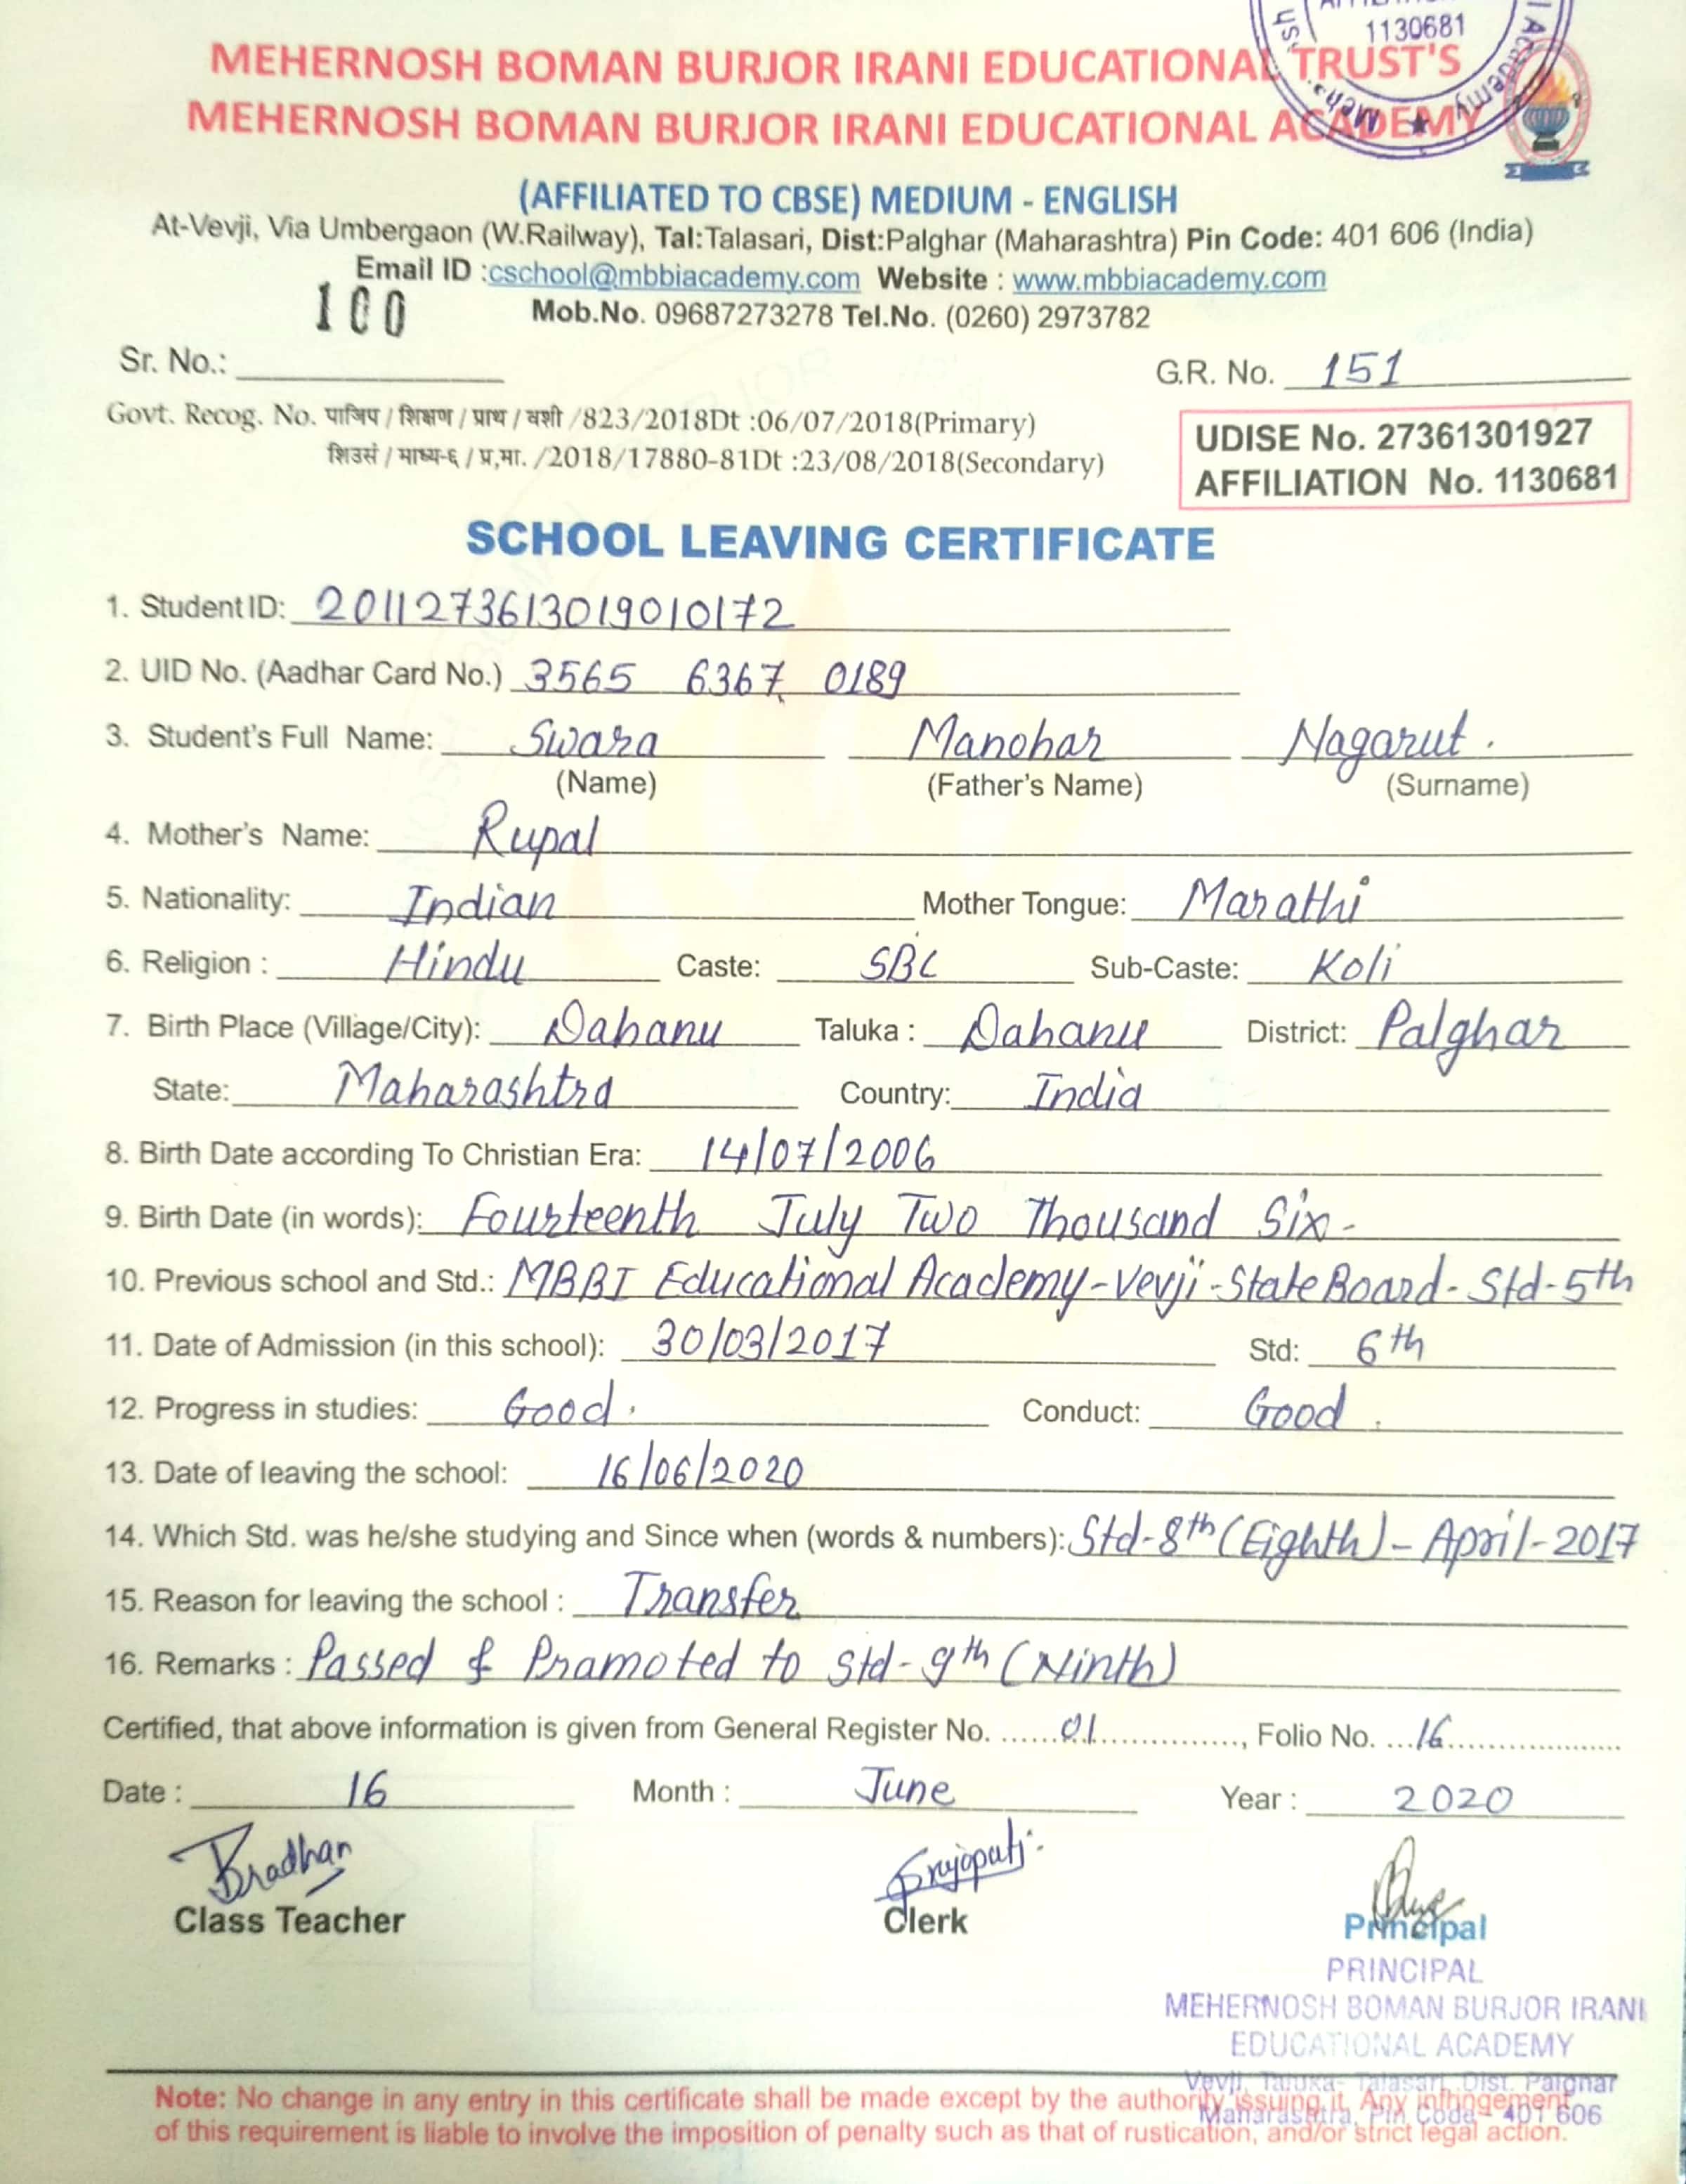 1130681
MEHERNOSH BOMAN BURJOR IRANI EDUCATIONAL TRUST'S
MEHERNOSH BOMAN BURJOR IRANI EDUCATIONAL ACADEMY
(AFFILIATED TO CBSE) MEDIUM - ENGLISH
At-Vevji, Via Umbergaon (W.Railway), Tal:Talasari, Dist:Palghar (Maharashtra) Pin Code: 401 606 (India)
Email ID :cschool@mbbiacademy.com Website : www.mbbiacademy.com
Mob.No. 09687273278 Tel.No. (0260) 2973782
100
Sr. No.:
G.R. No. 151
Govt. Recog. No. पाजिप / शिक्षण / प्राथ / वशी /823/2018Dt :06/07/2018(Primary)
शिउसं / माध्य-६ / प्र,मा. /2018/17880-81Dt :23/08/2018(Secondary)
UDISE No. 27361301927
AFFILIATION No. 1130681
SCHOOL LEAVING CERTIFICATE
1. Student ID: 2011273613019010172
2. UID No. (Aadhar Card No.) 3565 6367 0189
3. Student's Full Name: Swara Manohar Nagarut.
(Name) (Father's Name) (Surname)
4. Mother's Name: Rupal
5. Nationality: Indian Mother Tongue: Marathi
6. Religion : Hindu Caste: SBC Sub-Caste: Koli
7. Birth Place (Village/City): Dahanu Taluka : Dahanu District: Palghar
State: Maharashtra Country: India
8. Birth Date according To Christian Era: 14/07/2006
9. Birth Date (in words): Fourteenth July Two Thousand Six-
10. Previous school and Std.: MBBI Educational Academy-Vevji-State Board-Std-5th
11. Date of Admission (in this school): 30/03/2017 Std: 6th
12. Progress in studies: Good. Conduct: Good.
13. Date of leaving the school: 16/06/2020
14. Which Std. was he/she studying and Since when (words & numbers): Std-8th (Eighth)-April-2017
15. Reason for leaving the school : Transfer
16. Remarks : Passed & Pramoted to Std-9th (Ninth)
Certified, that above information is given from General Register No. ......01.............., Folio No. ...16....................
Date : 16 Month : June Year : 2020
Bradhan Prajapati
Class Teacher Clerk Principal
PRINCIPAL
MEHERNOSH BOMAN BURJOR IRANI
EDUCATIONAL ACADEMY
Vevji, Taluka- Talasari, Dist. Palghar
Maharashtra, Pin Code - 401 606
Note: No change in any entry in this certificate shall be made except by the authority issuing it. Any infringement
of this requirement is liable to involve the imposition of penalty such as that of rustication, and/or strict legal action.